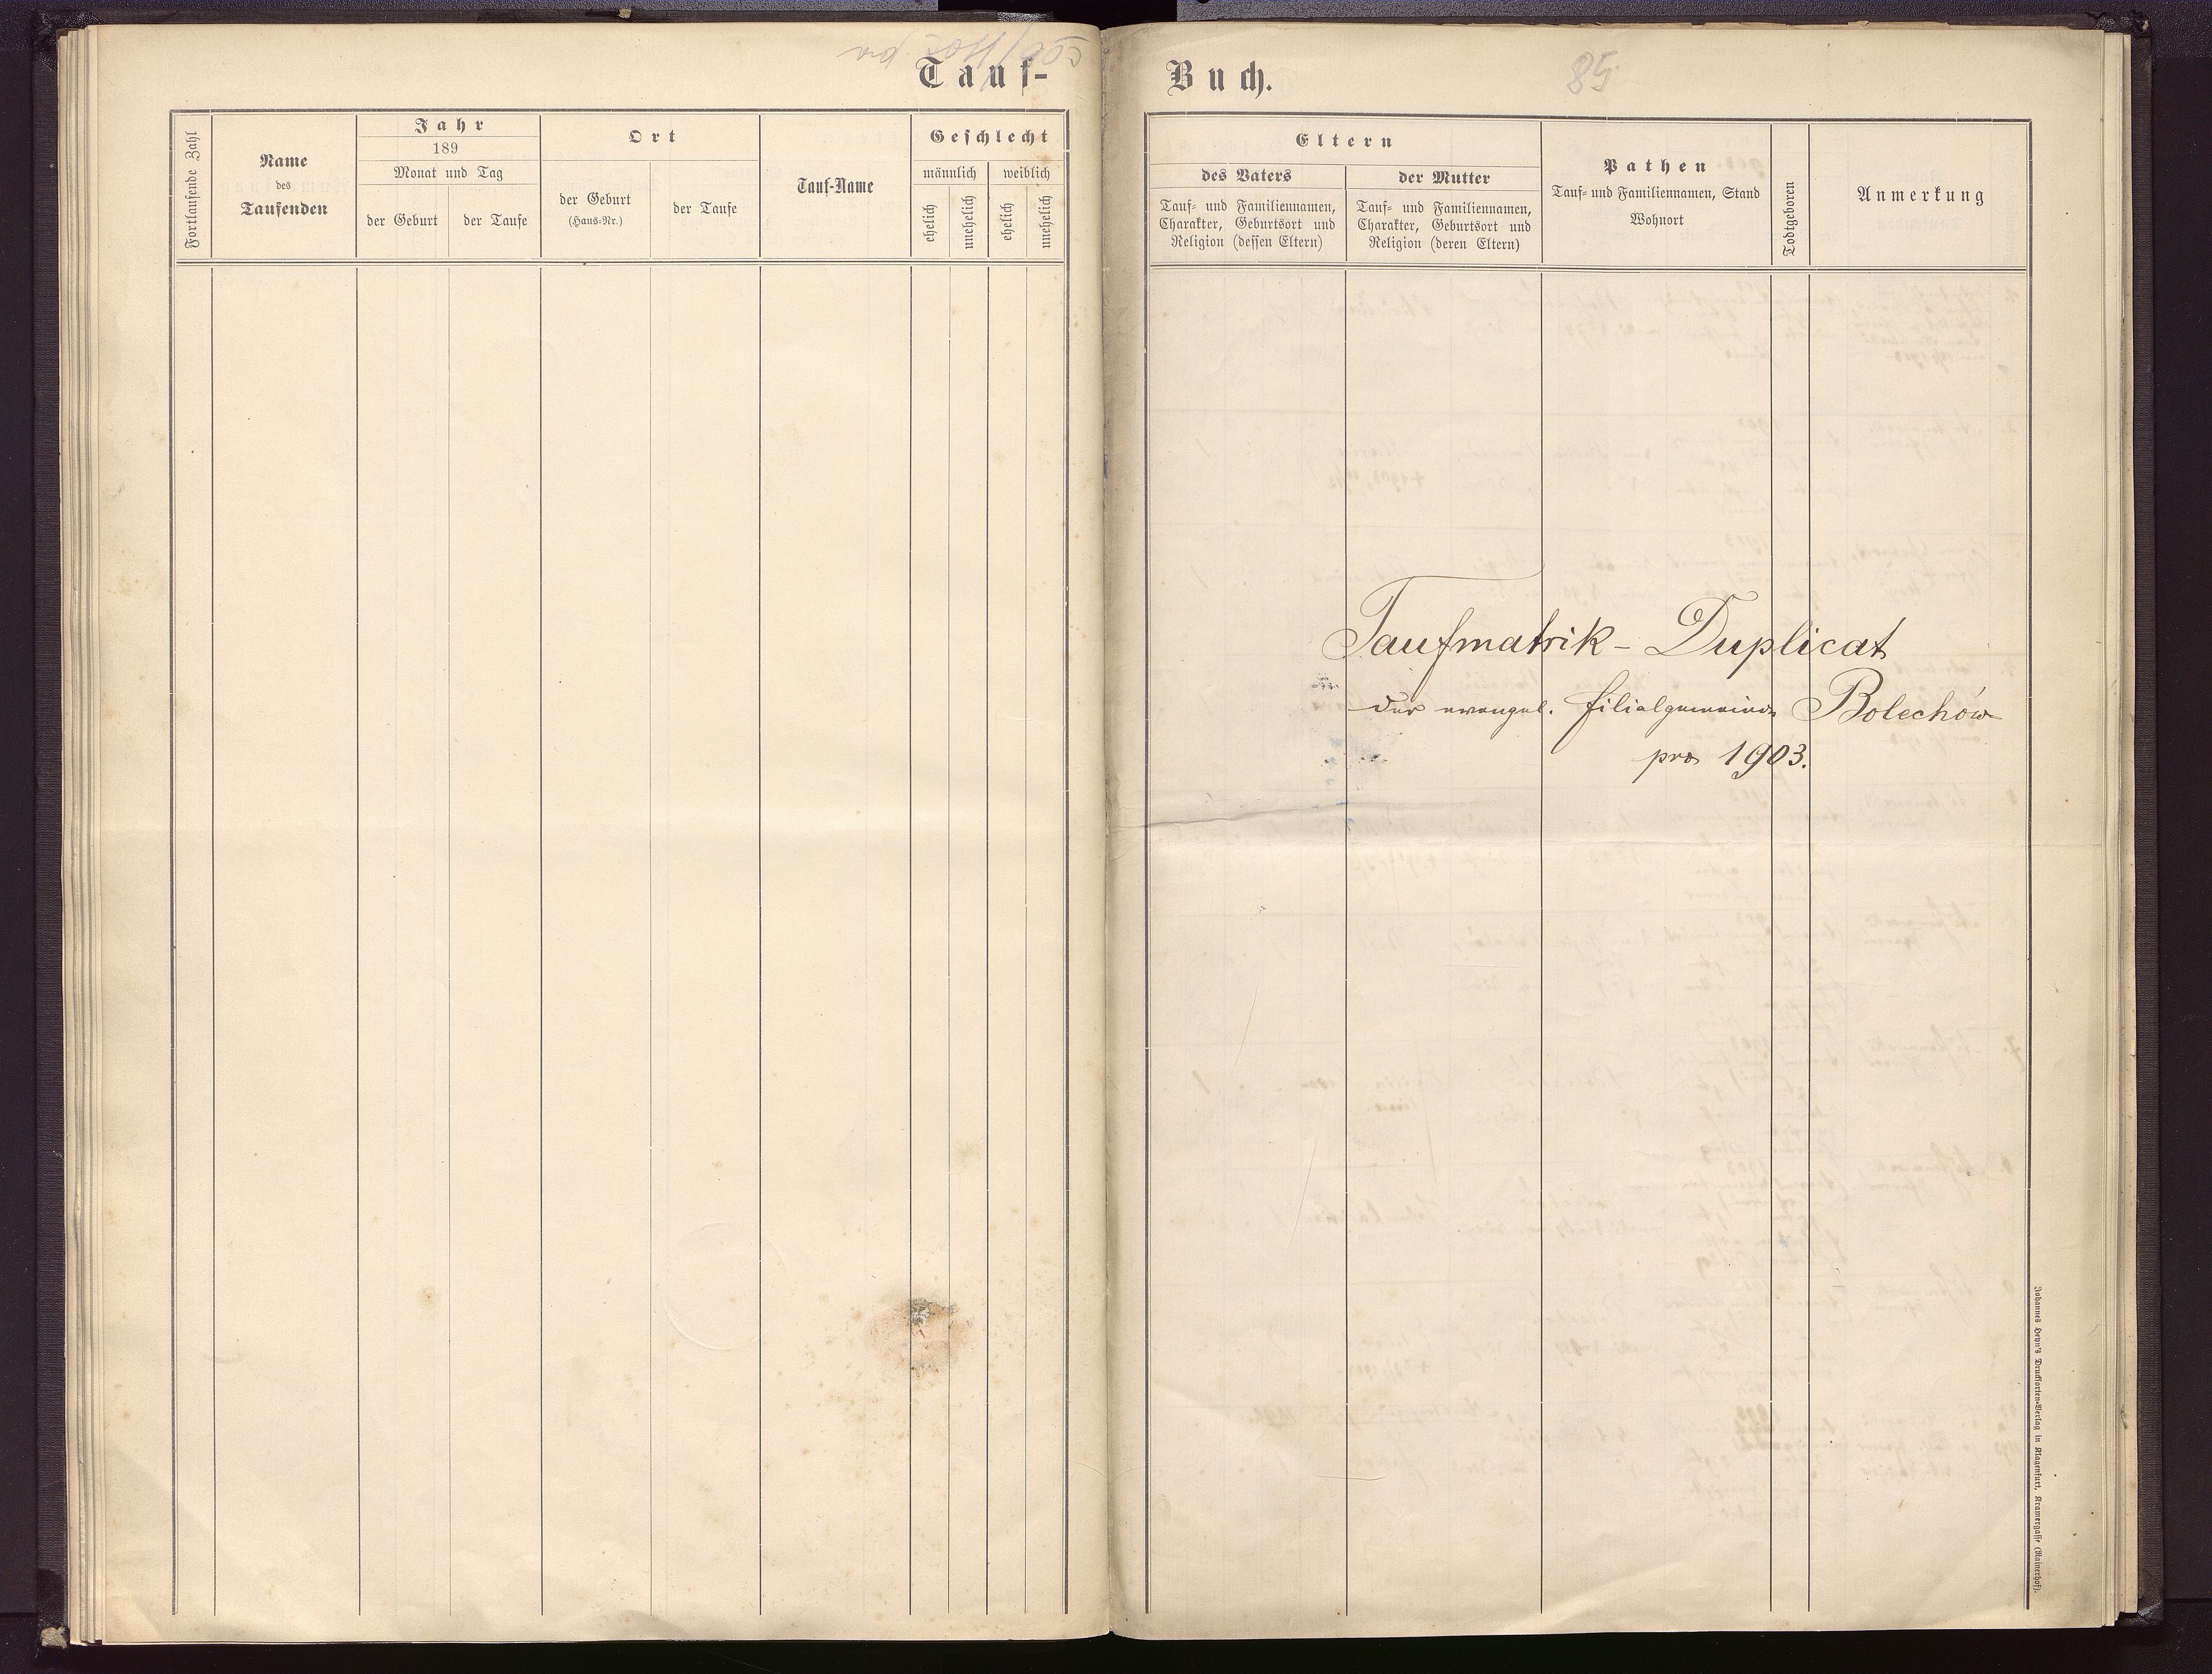 Tauf-
Fortlaufende Zahl
Name
des
Taufenden
Jahr
189
Monat und Tag
der Geburt
der Taufe
Ort
der Geburt
(Haus-Nr.)
der Taufe
Tauf-Name
Geschlecht
männlich
weiblich
ehelich
unehelich
ehelich
unehelich
Buch.
85
Eltern
des Vaters
Tauf- und Familiennamen,
Charakter, Geburtsort und
Religion (dessen Eltern)
der Mutter
Tauf- und Familiennamen,
Charakter, Geburtsort und
Religion (deren Eltern)
Pathen
Tauf- und Familiennamen, Stand
Wohnort
Todtgeboren
Anmerkung
Taufmatrik - Duplicat
der evangel. Filialgemeinde Bolechów
pro 1903.
Johannes Heyn's Drucksorten-Verlag in Klagenfurt, Kramergasse (Rainerhof).